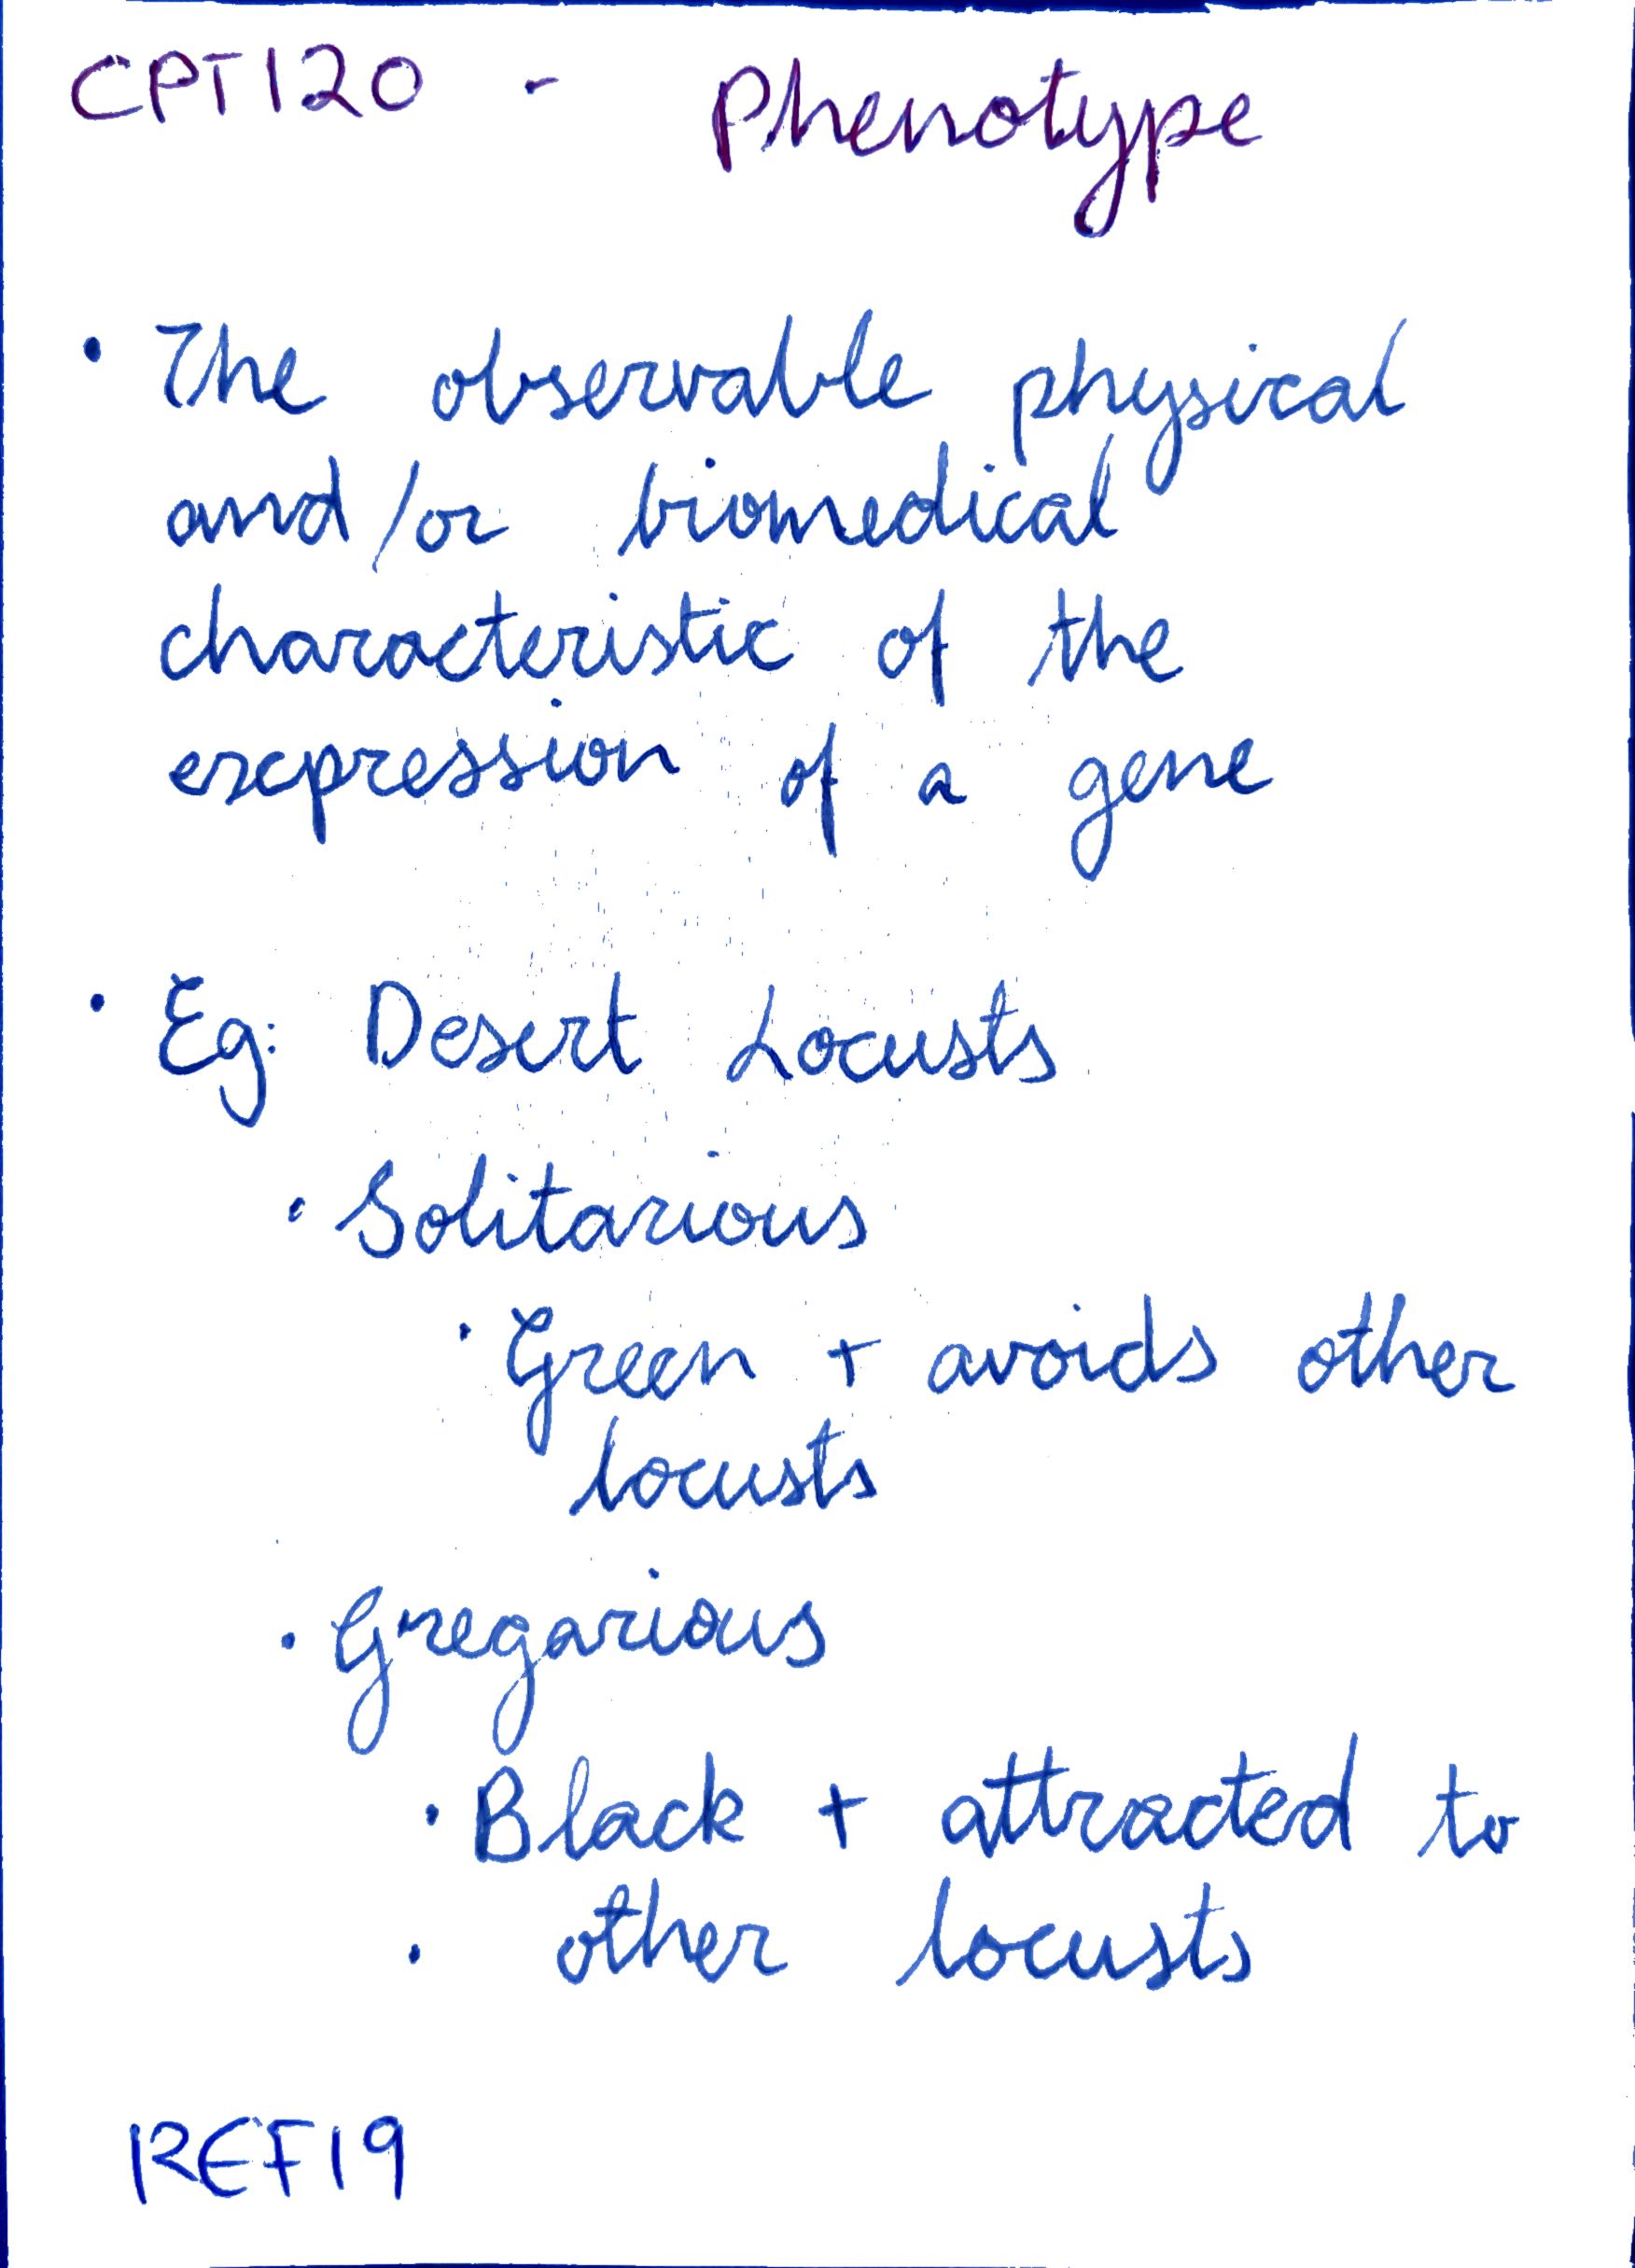 CPT120 - Phenotype
• The observable physical
and/or biomedical
characteristic of the
expression of a gene
• Eg: Desert Locusts
• Solitarious
• Green + avoids other
locusts
• Gregarious
• Black + attracted to
• other locusts
REF19